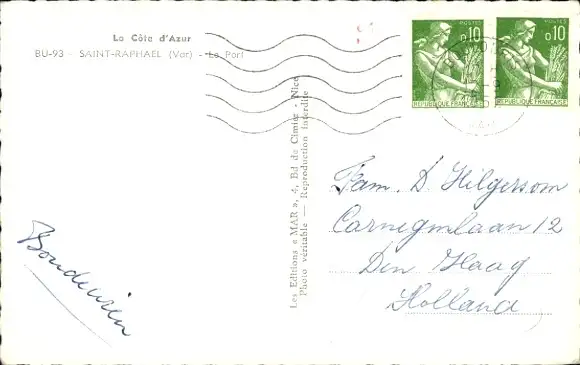 La Côte d'Azur
BU-93 - SAINT-RAPHAËL (Var) - Le Port
POSTES
0,10
REPUBLIQUE FRANÇAISE
POSTES
0,10
REPUBLIQUE FRANÇAISE
Les Editions « MAR », 4, Bd de Cimiez - Nice
Photo véritable — Reproduction interdite
Fam. D. Hilgersom
Carnegielaan 12
Den Haag
Holland